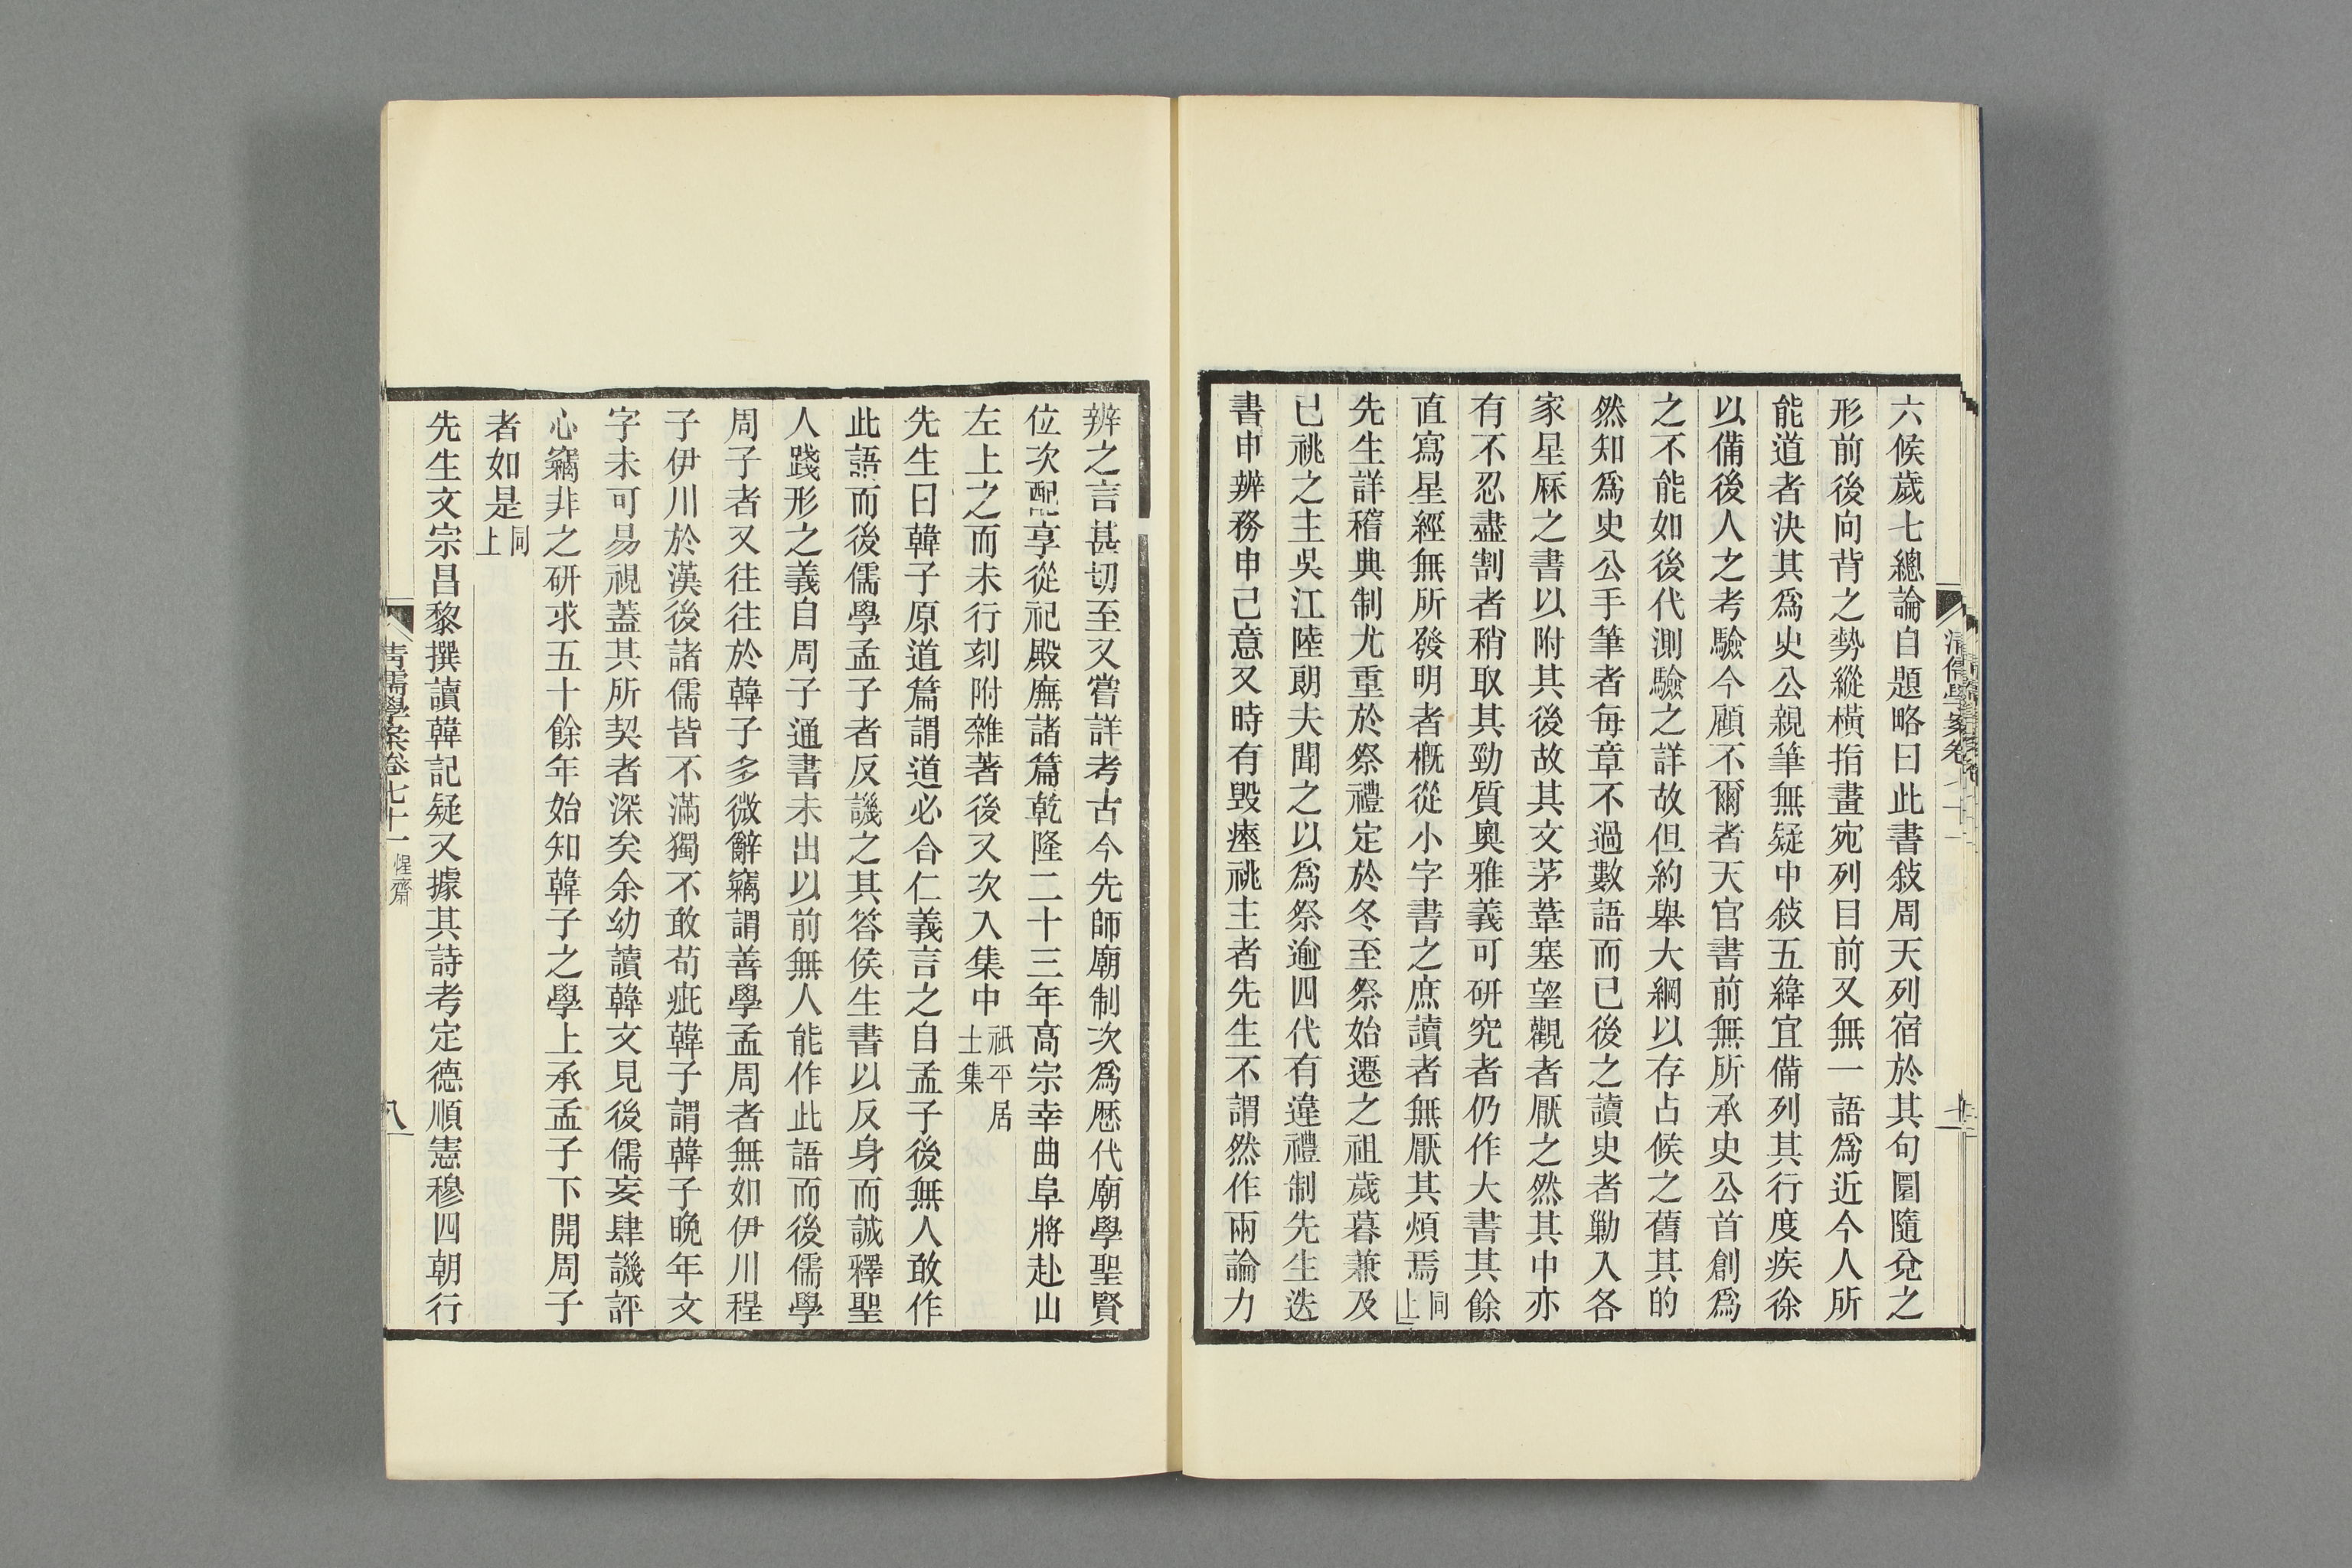 六候歲七總論自題略曰此書敍周天列宿於其句圜隨兌之
形前後向背之勢縱橫指畫宛列目前又無一語爲近今人所
能道者決其爲史公親筆無疑中敍五緯宜備列其行度疾徐
以備後人之考驗今顧不爾者天官書前無所承史公首創爲
之不能如後代測驗之詳故但約舉大綱以存占候之舊其的
然知爲史公手筆者每章不過數語而已後之讀史者勦入各
家星厤之書以附其後故其文茅葦塞望觀者厭之然其中亦
有不忍盡割者稍取其勁質奧雅義可研究者仍作大書其餘
直寫星經無所發明者概從小字書之庶讀者無厭其煩焉同上
先生詳稽典制尤重於祭禮定於冬至祭始遷之祖歲暮兼及
已祧之主吳江陸朗夫聞之以爲祭逾四代有違禮制先生迭
書申辨務申己意又時有毀瘞祧主者先生不謂然作兩論力
辨之言甚切至又嘗詳考古今先師廟制次爲歷代廟學聖賢
位次配享從祀殿廡諸篇乾隆二十三年高宗幸曲阜將赴山
左上之而未行刻附雜著後又次入集中祇平居士集
先生曰韓子原道篇謂道必合仁義言之自孟子後無人敢作
此語而後儒學孟子者反譏之其答侯生書以反身而誠釋聖
人踐形之義自周子通書未出以前無人能作此語而後儒學
周子者又往往於韓子多微辭竊謂善學孟周者無如伊川程
子伊川於漢後諸儒皆不滿獨不敢苟疵韓子謂韓子晚年文
字未可易視蓋其所契者深矣余幼讀韓文見後儒妄肆譏評
心竊非之研求五十餘年始知韓子之學上承孟子下開周子
者如是同上
先生文宗昌黎撰讀韓記疑又據其詩考定德順憲穆四朝行
清儒學案卷七十一 惺齋
八